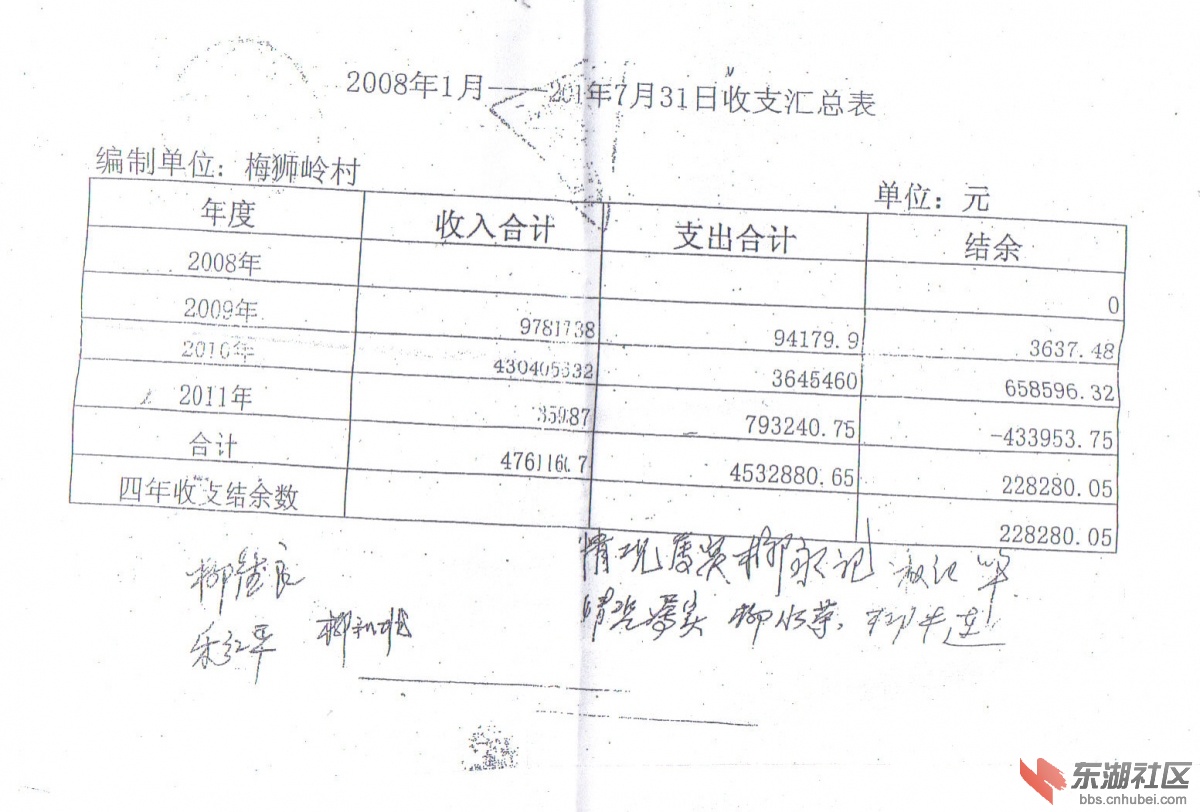 2008年1月——201年7月31日收支汇总表
编制单位：梅狮岭村
单位：元
年度 收入合计 支出合计 结余
2008年 0
2009年 97817.38 94179.9 3637.48
2010年 4304056.32 3645460 658596.32
2011年 35987 793240.75 -433953.75
合计 4761160.7 4532880.65 228280.05
四年收支结余数 228280.05
情况属实 柳永记
情况属实 柳
东湖社区
bbs.cnhubei.com